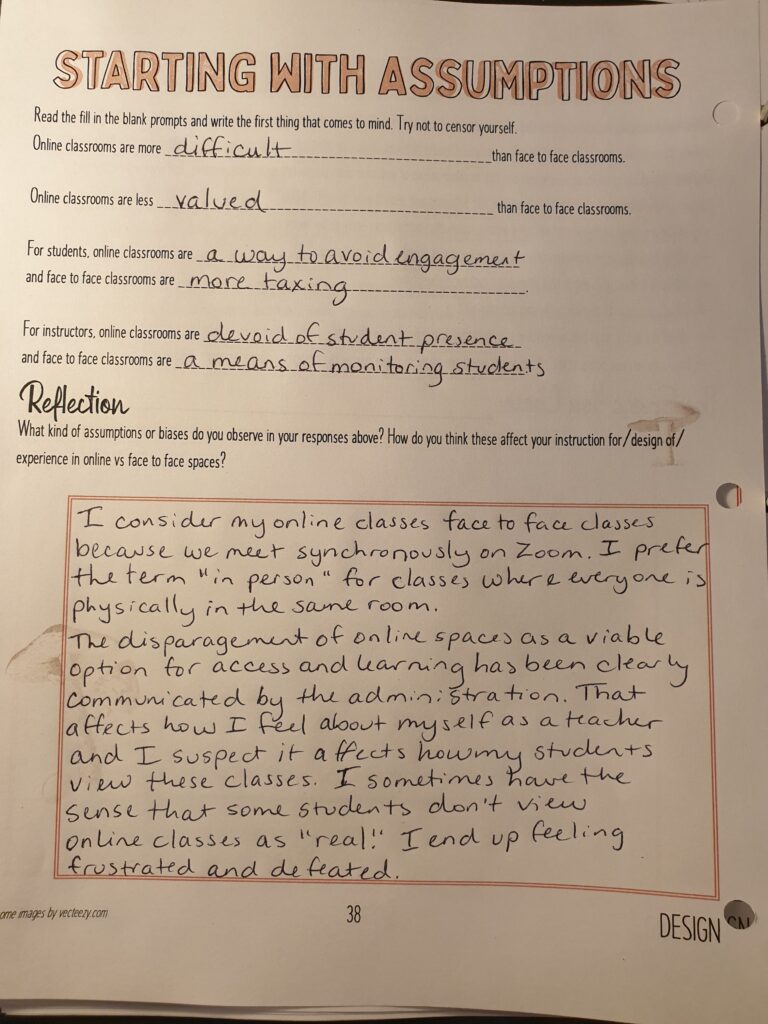 STARTING WITH ASSUMPTIONS
Read the fill in the blank prompts and write the first thing that comes to mind. Try not to censor yourself.
Online classrooms are more difficult than face to face classrooms.
Online classrooms are less valued than face to face classrooms.
For students, online classrooms are a way to avoid engagement
and face to face classrooms are more taxing.
For instructors, online classrooms are devoid of student presence
and face to face classrooms are a means of monitoring students
Reflection
What kind of assumptions or biases do you observe in your responses above? How do you think these affect your instruction for/design of/
experience in online vs face to face spaces?
I consider my online classes face to face classes
because we meet synchronously on Zoom. I prefer
the term "in person" for classes where everyone is
physically in the same room.
The disparagement of online spaces as a viable
option for access and learning has been clearly
communicated by the administration. That
affects how I feel about myself as a teacher
and I suspect it affects how my students
view these classes. I sometimes have the
sense that some students don't view
online classes as "real!" I end up feeling
frustrated and defeated.
ome images by vecteezy.com
38
DESIGN